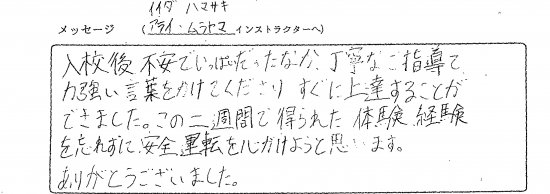 イイダ ハマサキ
メッセージ (アライ・ムラヤマ インストラクターへ)
入校後 不安でいっぱいだったなか、丁寧なご指導で
力強い言葉をかけてくださり すぐに上達することが
できました。この二週間で得られた 体験、経験
を忘れずに、安全運転を心がけようと思います。
ありがとうございました。